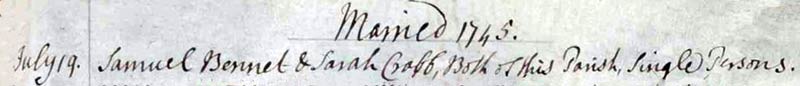 Married 1745.
July 19. Samuel Bennet & Sarah Crabb, Both of this Parish, Single Persons.